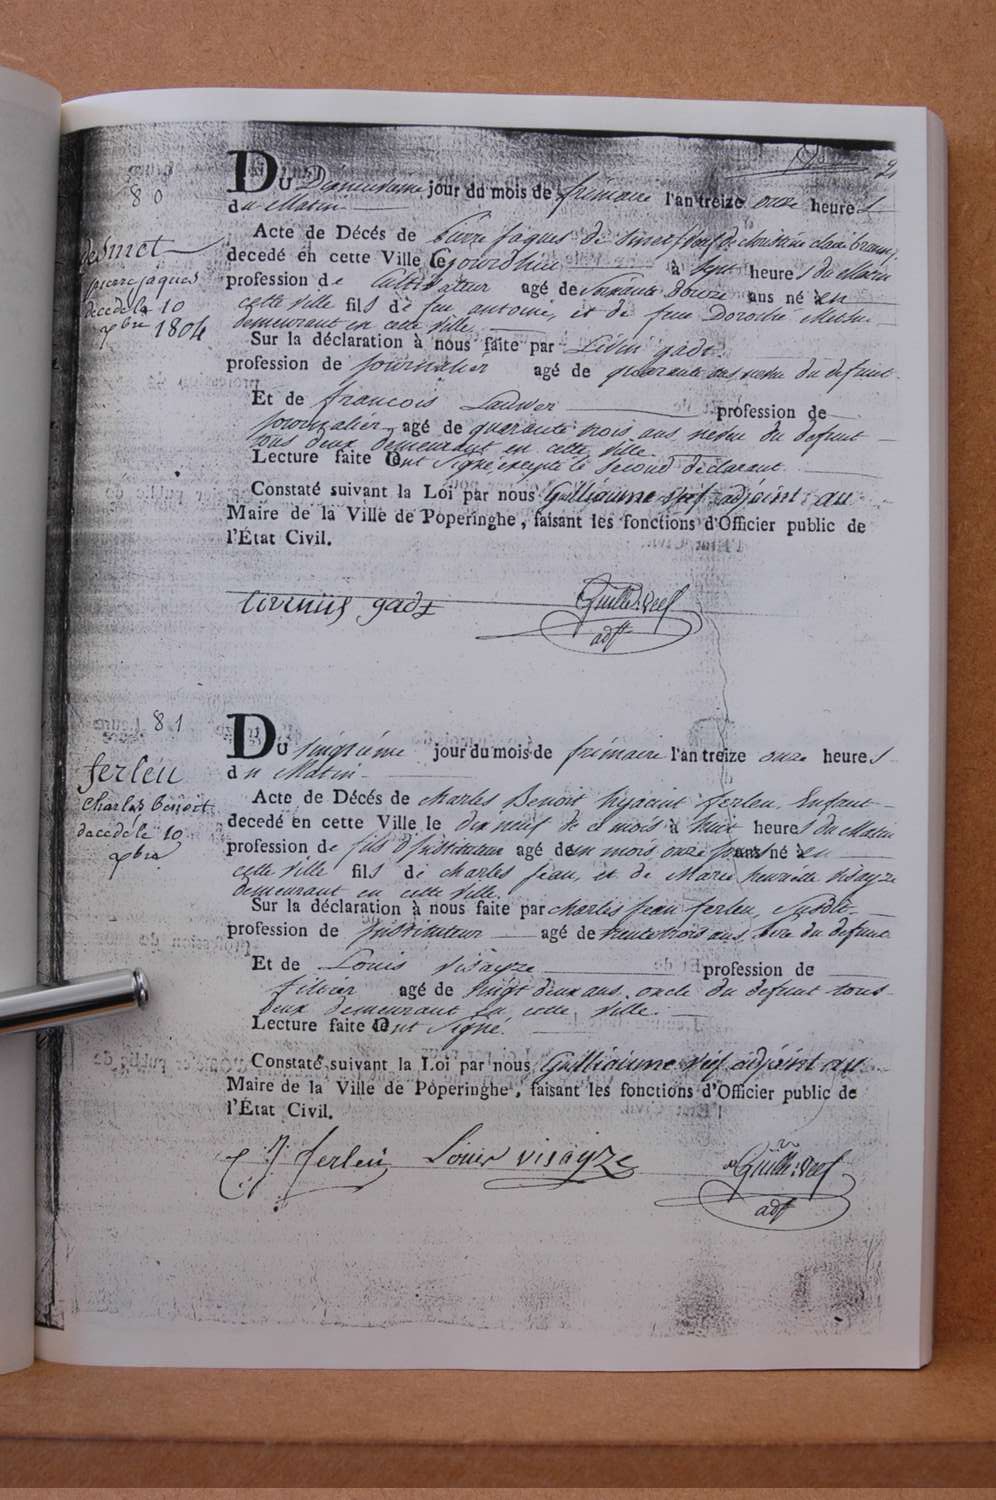 80
Du Dixneuvieme jour du mois de frimaire l'an treize onze heures
du Matin
desmet
pierre jaques
decedé le 10
xbre 1804
Acte de Décés de Pierre Jaques de Smet
decedé en cette Ville cejourdhui à sept heures du Matin
profession de Cultivateur agé de Soixante Douze ans né en
cette ville fils de feu antoine, et de feue Dorothé
demeurant en cette Ville
Sur la déclaration à nous faite par Livin gadt
profession de journalier agé de quarante ans neveu du defunt
Et de francois Lauwer profession de
journalier agé de quarante trois ans neveu du defunt
tous deux demeurant en cette ville.
Lecture faite ont Signé, excepté le second declarant.
Constaté suivant la Loi par nous Guilliaume Veef adjoint au
Maire de la Ville de Poperinghe, faisant les fonctions d'Officier public de
l'État Civil.
Livinus gadt Guille: Veef
adjt
81
Du vingtième jour du mois de frimaire l'an treize onze heures
du Matin
ferleu
charles benoit
decedé le 10
xbre
Acte de Décés de charles Benoit hyacint ferleu, Enfant
decedé en cette Ville le dixneuf de ce mois à huit heures du Matin
profession de fils d'Instituteur agé de un mois onze jours né en
cette ville fils de charles jean, et de Marie henriette visayze
demeurant en cette ville.
Sur la déclaration à nous faite par charles jean ferleu,
profession de Instituteur agé de trente trois ans, pere du defunt
Et de Louis visayze profession de
agé de vingt deux ans, oncle du defunt tous
deux demeurant en cette ville.
Lecture faite ont Signé.
Constaté suivant la Loi par nous Guilliaume Veef adjoint au
Maire de la Ville de Poperinghe, faisant les fonctions d'Officier public de
l'État Civil.
C J ferleu Louis visayze Guille: Veef
adjt